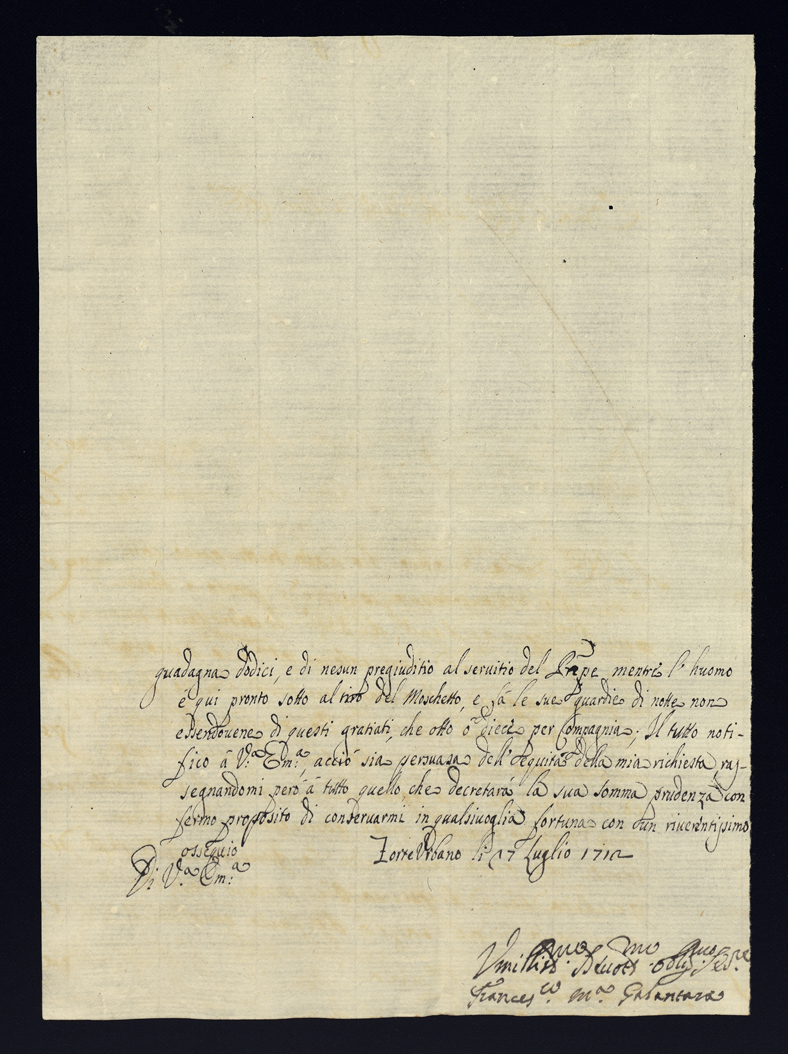 guadagna dodici, e di nesun pregiuditio al seruitio del Prñpe mentre l'huomo
è qui pronto sotto al tiro del Moschetto, e fà le sue guardie di notte non
essendouene di questi gratiati, che otto ò dieci per Compagnia; Il tutto noti-
fico à V.ª Em.ª, acciò sia persuasa dell'Aequità della mia richiesta, ras-
segnandomi però à tutto quello, che decretarà la sua somma prudenza con
fermo proposito di conseruarmi in qualsiuoglia fortuna con un riuerentissimo
ossequio
Torre Vrbano li 27 Luglio 1712
Di V.ª Em.ª
Vmiliss.mo Deuot.mo oblig.mo Ser.re
Frances.co M.ª Galantara